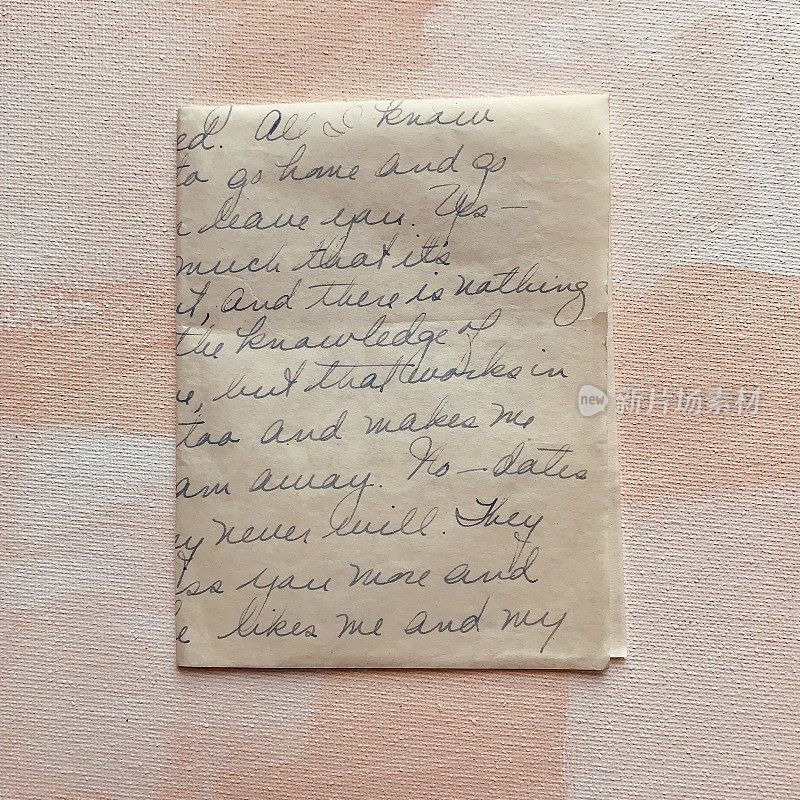 ed. All I know
to go home and go
leave you. Yes —
much that it's
t, and there is nothing
the knowledge of
e, but that works in
too and makes me
am away. No — dates
y never will. They
ss you more and
e likes me and my
new 新片场素材